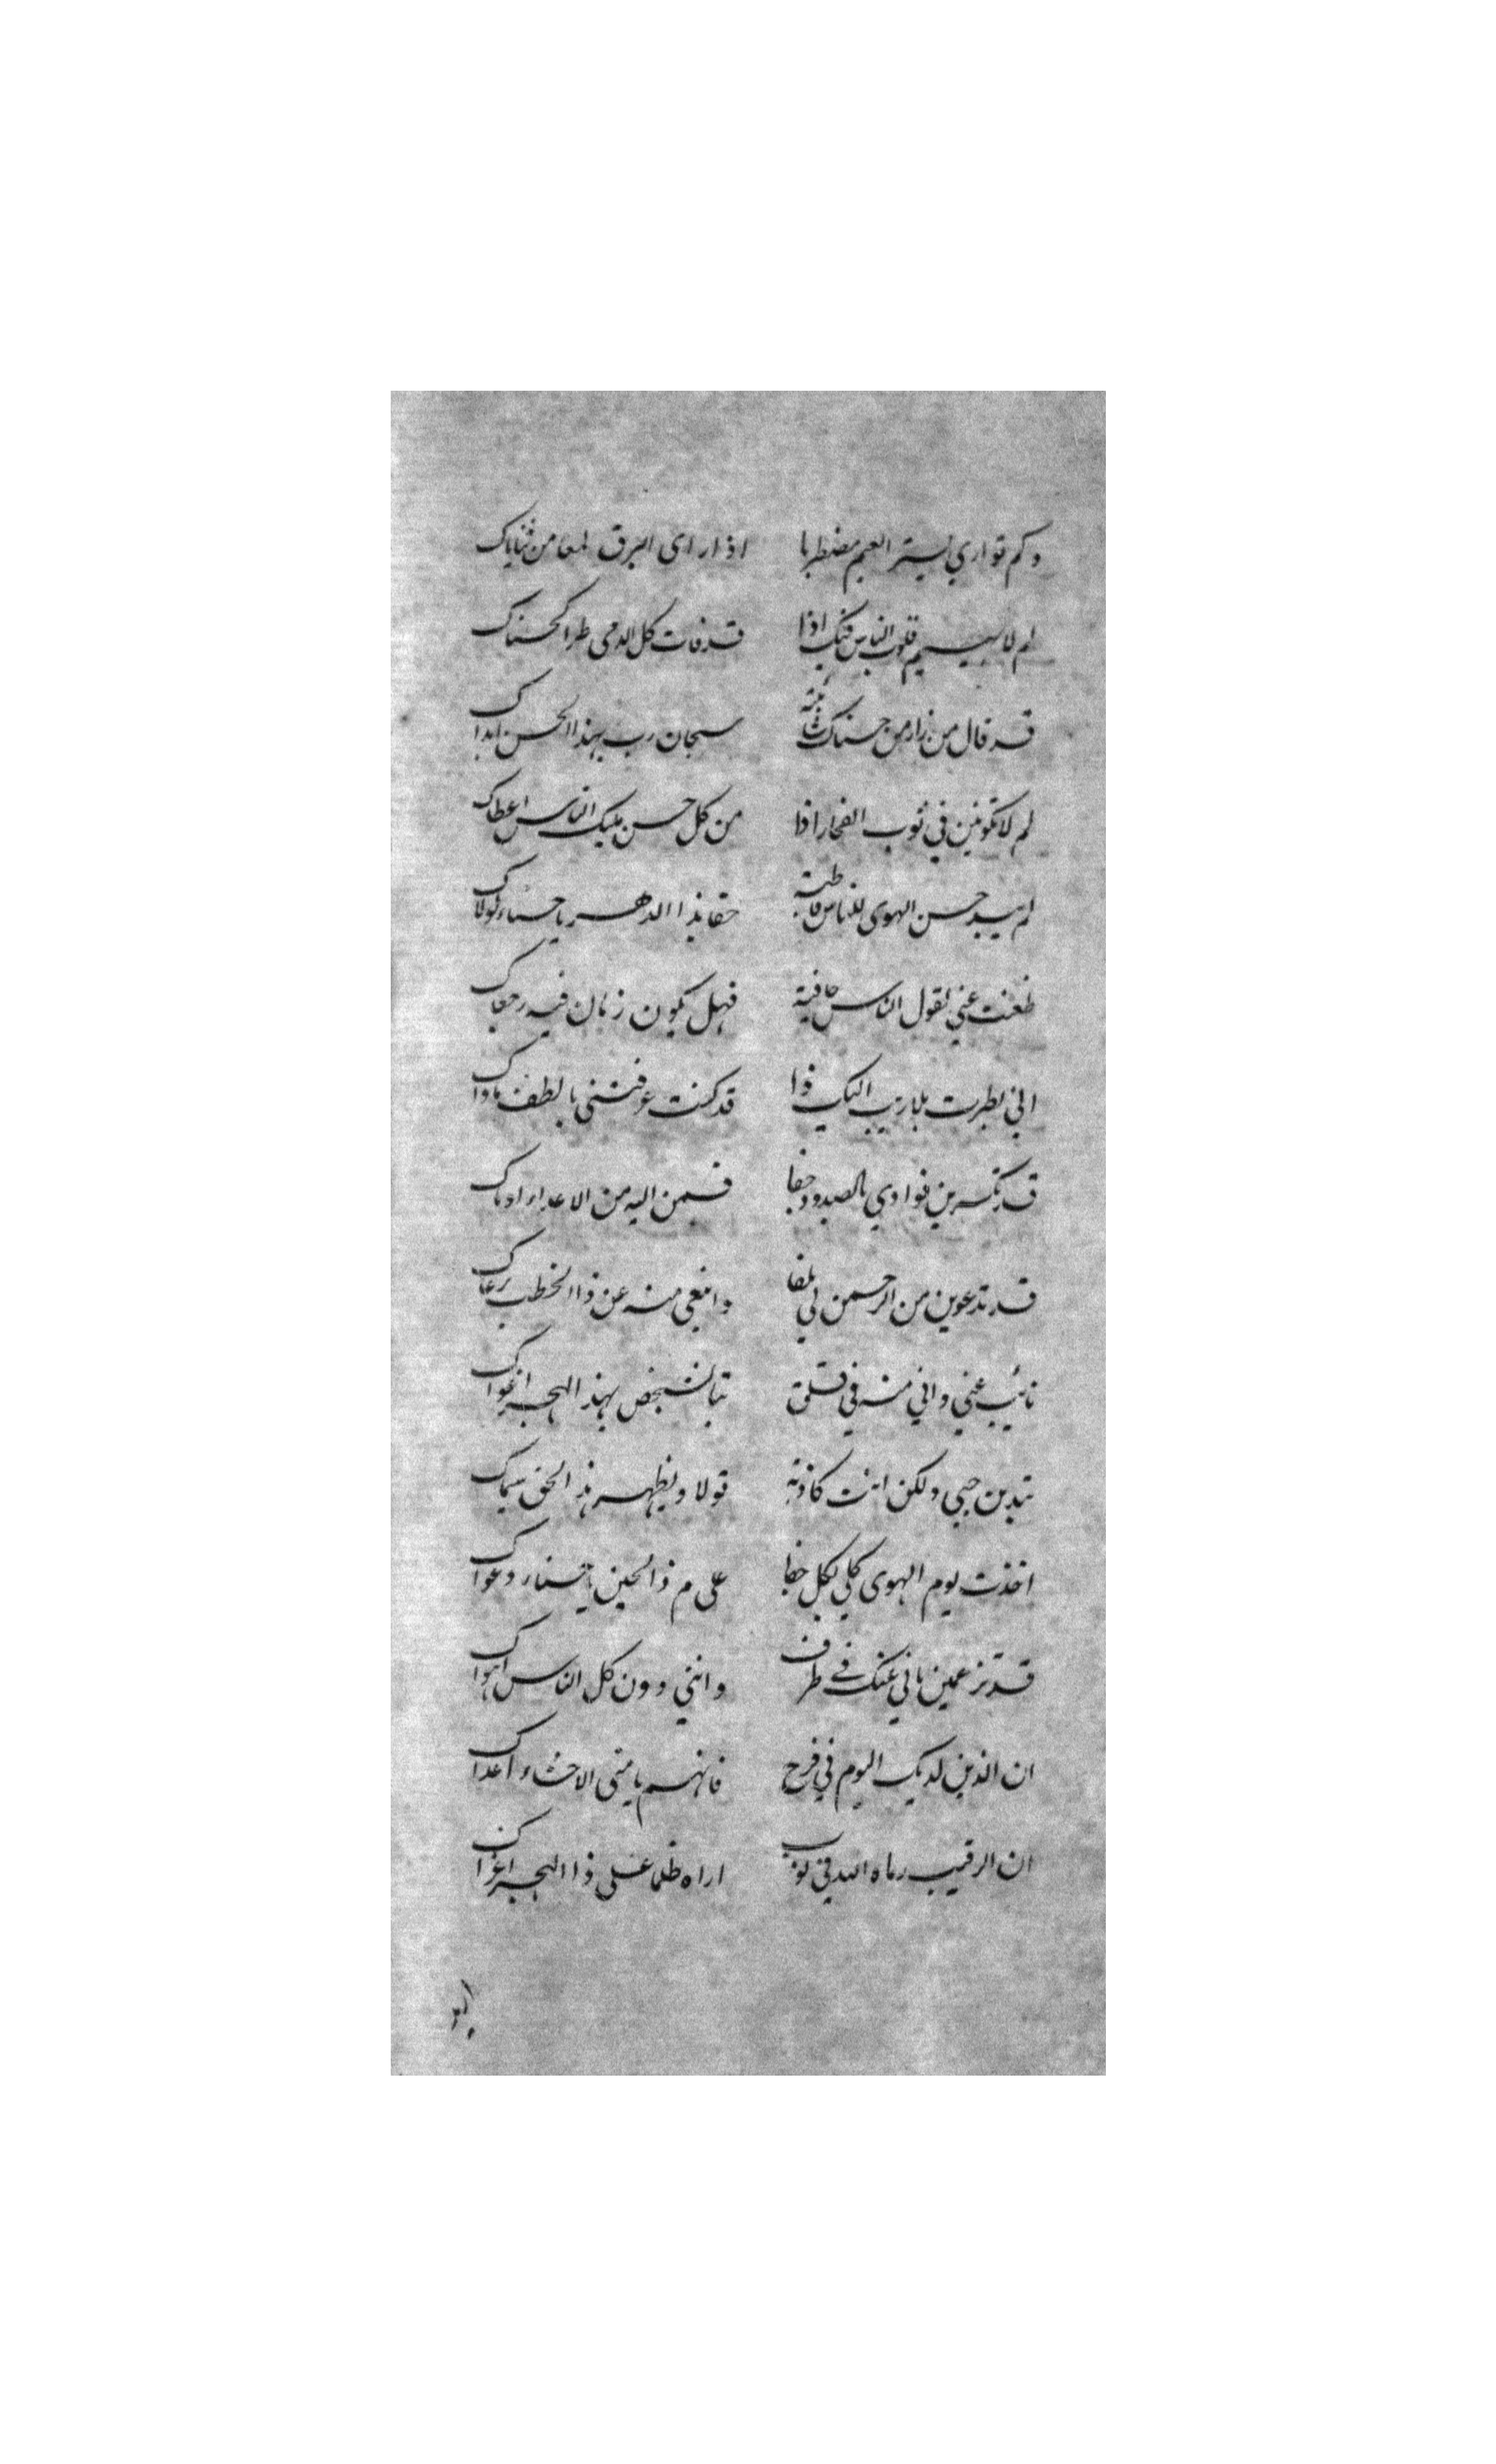 وكم تواري بستر الغيم مضطربا اذا راى البرق لمعا من ثناياك
لم لا يسيم قلوب الناس فيك اذا قد فات كل الدمى طرا كحسناك
قد قال من زار من حسناك ثانية سبحان رب بهذا الحسن ابداك
لم لا تكونين في ثوب الفخار اذا من كل حسن مليك الناس اعطاك
لم يبد حسن الهوى للناس قاطبة حقا بذا الدهر يا حسناء لولاك
ظعنت عني لقول الناس جافية فهل يكون زمان فيه رجعاك
اني نظرت بلا ريب اليك ذا قد كنت عرفتني باللطف
قد تكسرين فوادي بالصدود جفا فمن اليه من الاعداء
قد تدعوين من الرحمن لي تلفا وابتغي منه عن ذا الخطب رعاك
نائيت عني واني منه في قلق تبا لشخص بهذا الهجر اغواك
تبدين حبي ولكن انت كاذبة قولا ويظهر هذا الحق سيماك
اخذت يوم الهوى كلي بكل جفا على م ذا الحين يا حسناء دعواك
قد تزعمين باني عنك في طرف وانني دون كل الناس اهواك
ان الذين لديك اليوم في فرح فانهم يا منى الاحشاء اعداك
ان الرقيب رماه الله في نوب اراه ظلما على ذا الهجر اغراك